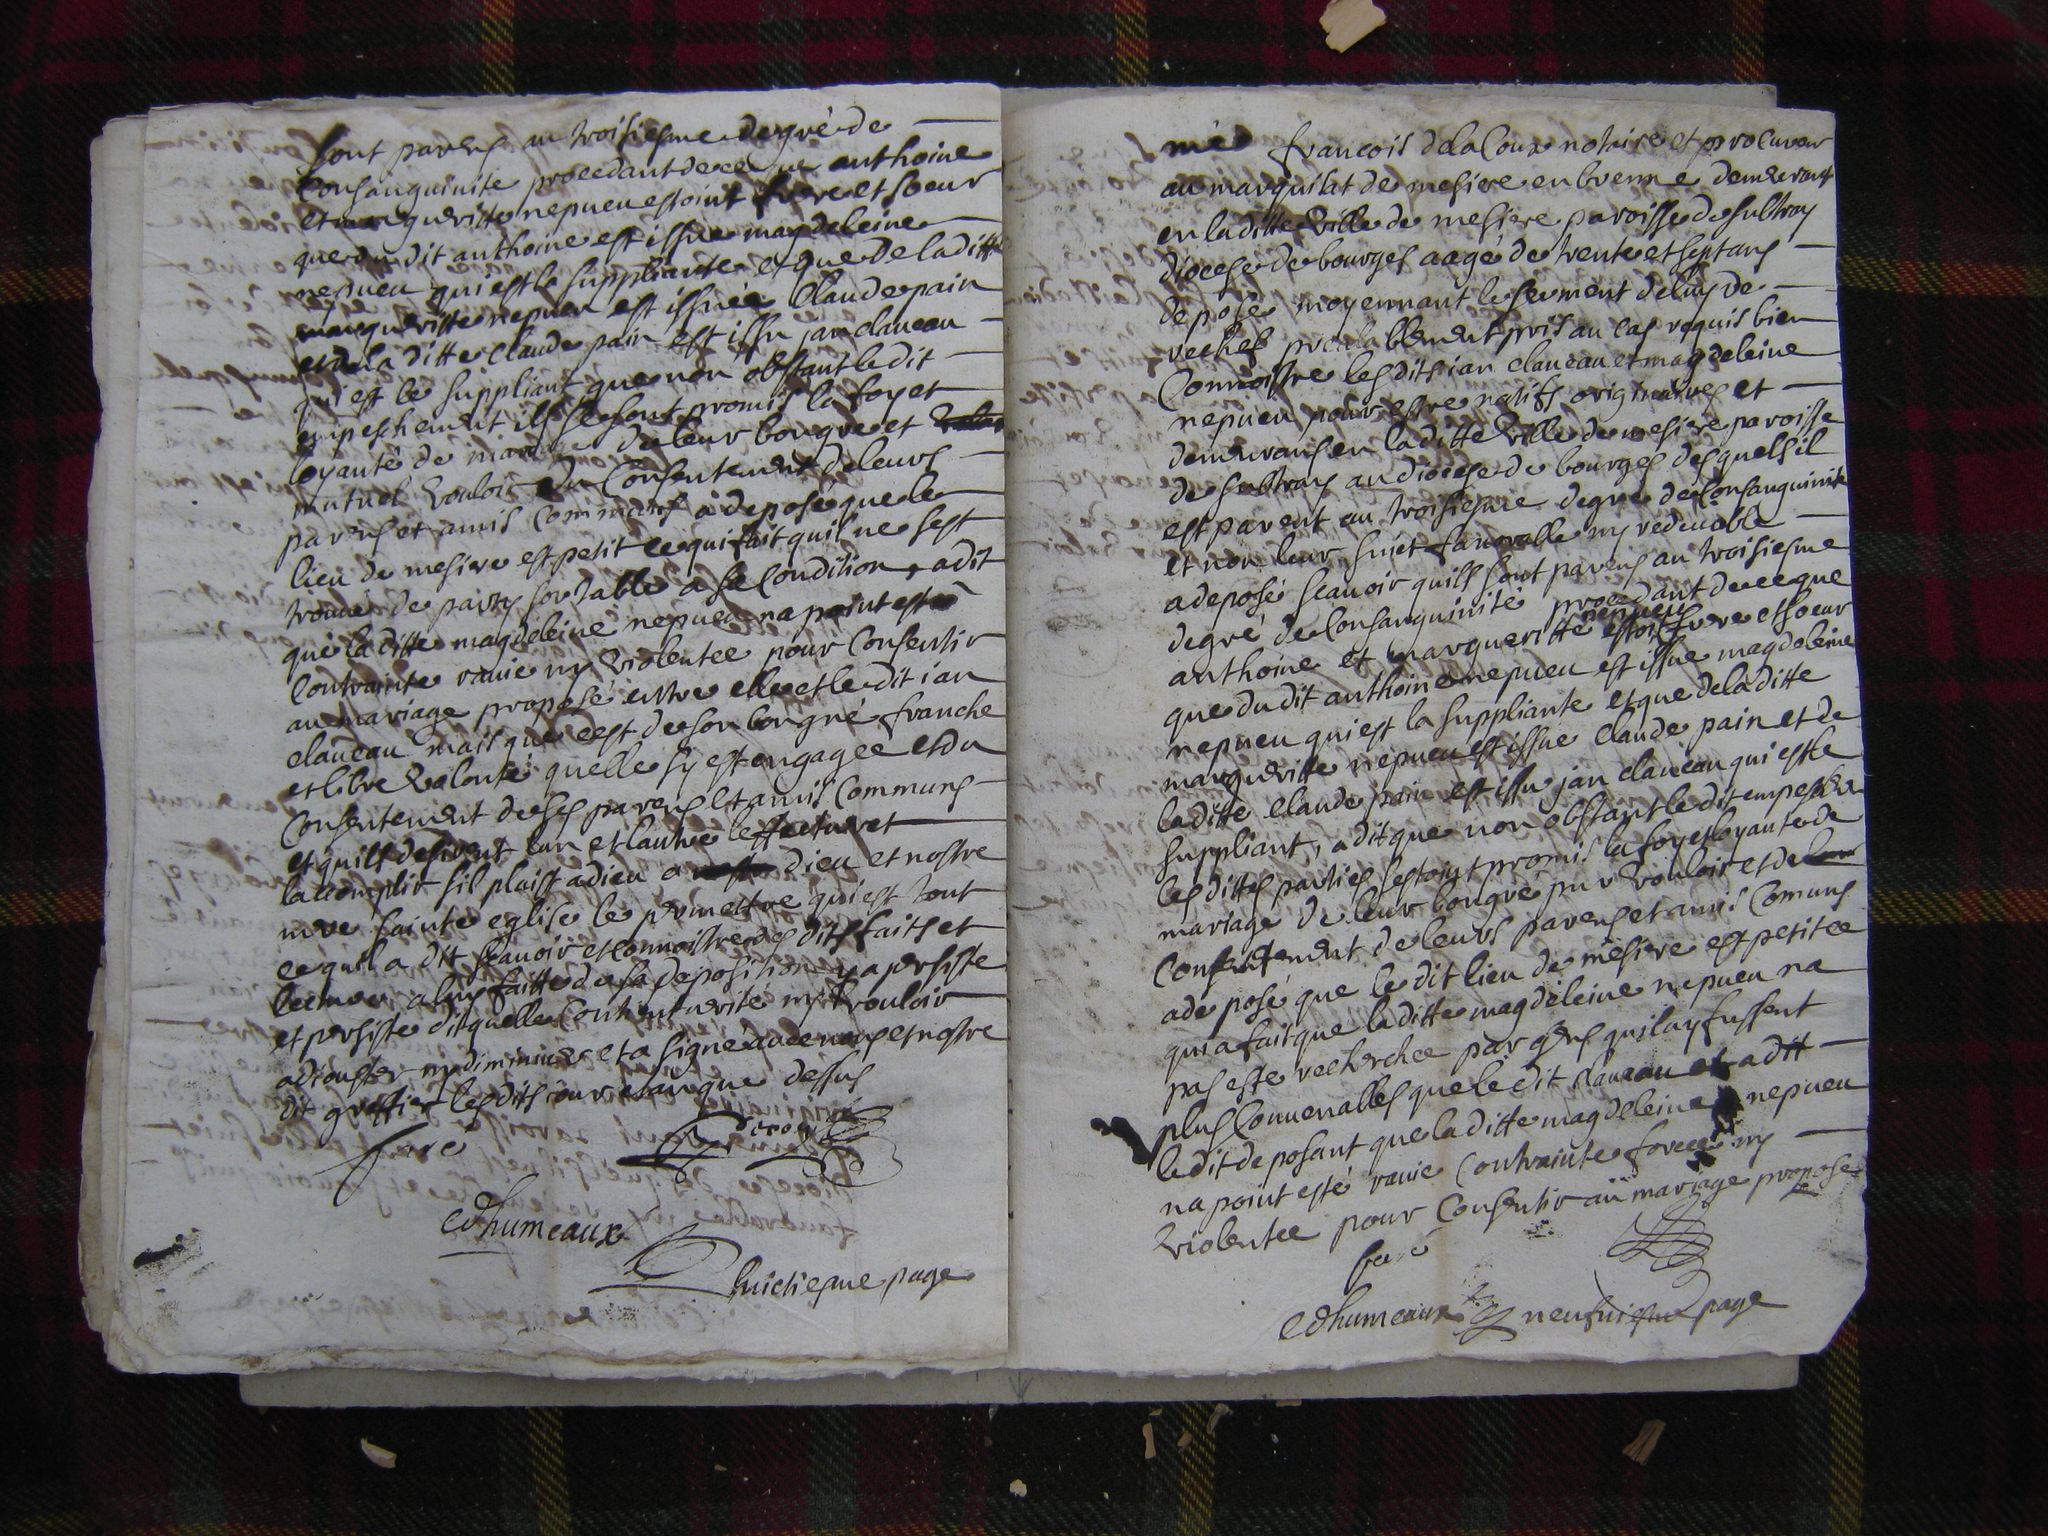 sont parens au troisiesme degré de
consanguinite procedant de ce que anthoine
et margueritte nepueu estoint frere et soeur
que du dit anthoine est issue magdeleine
nepueu qui est la suppliante et que de la ditte
margueritte nepueu est issuée claude pain
et de la ditte claude pain est issu jan claueau
qui est le suppliant que non obstant le dit
empeschement ils se sont promis la foy et
loyauté de mariage de leur bon gre et
mutuel vouloir du consentement de leurs
parens et amis communs a deposé que le
lieu de mesiere est petit ce qui fait quil ne sest
trouué de party sortable a sa condition, a dit
que la ditte magdeleine nepueu na point esté
contrainte rauie ny violentee pour consentir
au mariage proposé entre elle et le dit ian
claueau mais que cest de son bon gré franche
et libre volonté quelle sy est engagee et du
consentement de ses parens et amis communs
et quils desirent lun et lautre leffectuer et
lacomplir sil plaist a dieu a dieu et nostre
mre sainte eglise le permettre qui est tout
ce quil a dit scauoir et connoistre des dits faits et
lecture a luy faitte de sa deposition y a persisté
et persiste dit quelle contient verité ny vouloir
adiouster ny diminuer et a signé auec nous et nostre
dit greffier les dits iour et an que dessus
faré
edhumeaux
huictiesme page
me francois de la Coux notaire et procureur
au marquisat de mesiere en brenne demeurant
en la ditte ville de mesiere paroisse de subtray
diocese de bourges aagé de trente et sept ans
depose moyennant le serment de luy de
rechef prealablement pris au cas requis bien
connoistre les dits ian claueau et magdeleine
nepueu pour estre natifs originaires et
demeurans en la ditte ville de mesiere paroisse
de subtray au diocese de bourges desquels il
est parent au troisiesme degré de consanguinité
et non leur sujet fauorable ny redeuable
a deposé scauoir quils sont parens au troisiesme
degré de consanguinité procedant de ce que
anthoine et margueritte nepueu estoint frere et soeur
que du dit anthoine nepueu est issue magdeleine
nepueu qui est la suppliante et que de la ditte
margueritte nepueu est issue claude pain et de
la ditte claude pain est issu jan claueau qui est le
suppliant, a dit que non obstant le dit empeschem
les dittes parties sestoint promis la foy et loyauté de
mariage de leur bon gré pur vouloir et de
consentement de leurs parens et amis comuns
a deposé que le dit lieu de mesiere est petit ce
qui a fait que la ditte magdeleine nepueu na
pas esté recherchee par gens qui luy fussent
plus conuenables que le dit claueau et a dit
le dit deposant que la ditte magdeleine nepueu
na point esté rauie contrainte forcee ny
violentee pour consentir au mariage proposé
faré
edhumeaux neufuiesme page